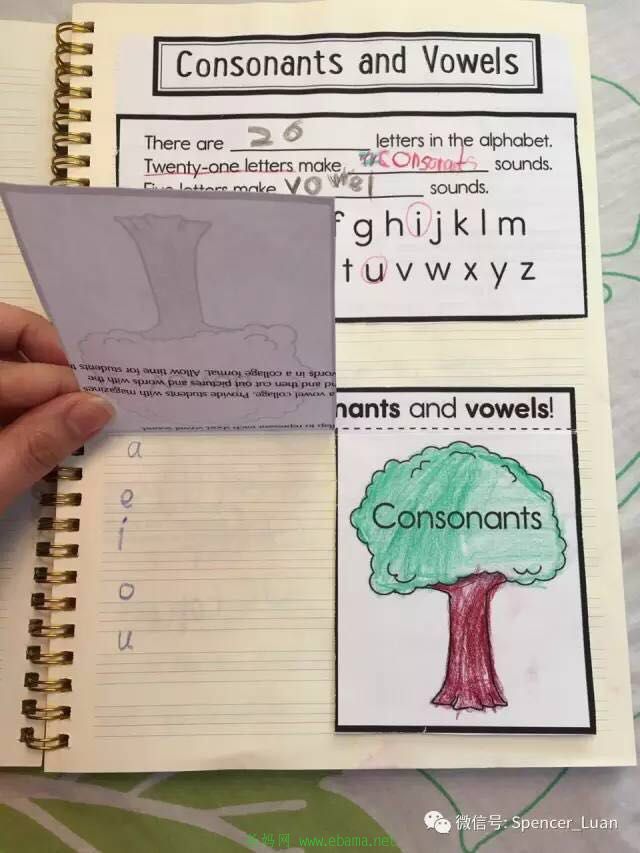 Consonants and Vowels
There are 26 letters in the alphabet.
Twenty-one letters make consonants sounds.
Five letters make vowel sounds.
f g h i j k l m
t u v w x y z
words in a collage format. Allow time for students t
nd and then cut out pictures and words with the
a vowel collage. Provide students with magazines
flap to represent each short vowel sound.
nants and vowels!
a
e
i
o
u
Consonants
微信号: Spencer_Luan
爸妈网 www.ebama.net